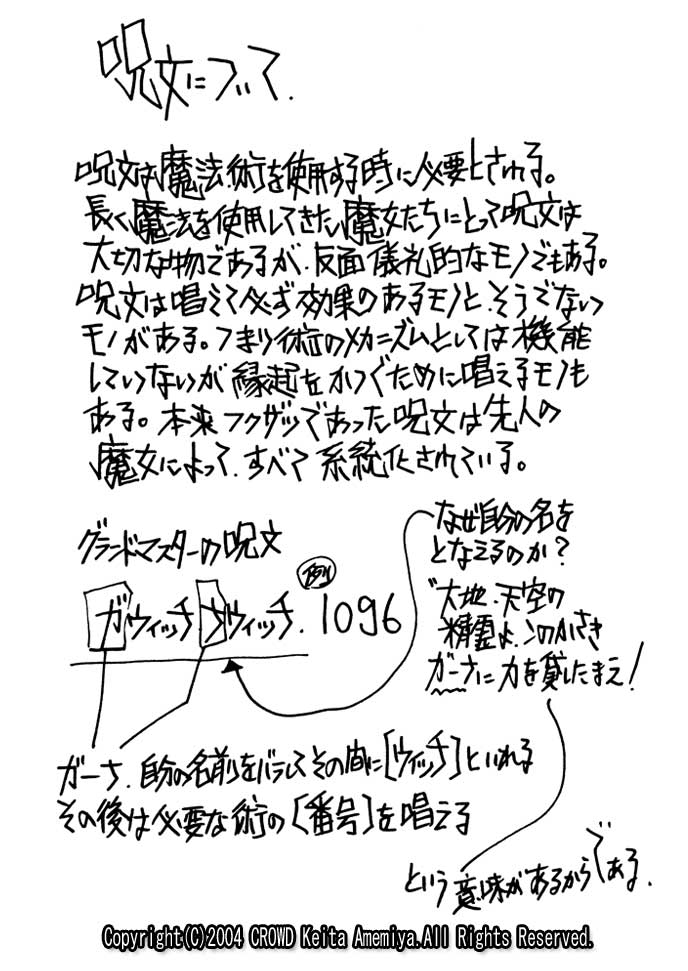 呪文について.
呪文は魔法術を使用する時に必要とされる。
長く魔法を使用してきた魔女たちにとって呪文は
大切な物であるが、反面儀礼的なモノでもある。
呪文は唱えて必ず効果のあるモノと、そうでない
モノがある。つまり術のメカニズムとしては機能
していないが縁起をかつぐために唱えるモノも
ある。本来フクザツであった呪文は先人の
魔女によって、すべて系統化されている。
グランドマスターの呪文
ガウィッチナウィッチ. 例 1096
なぜ自分の名を
となえるのか?
"大地、天空の
精霊よ、このかさき
ガーナに力を貸したまえ!
ガーナ、自分の名前をバラしてその間に[ウィッチ]といれる
その後は必要な術の[番号]を唱える
という意味があるからである.
Copyright(C)2004 CROWD Keita Amemiya.All Rights Reserved.